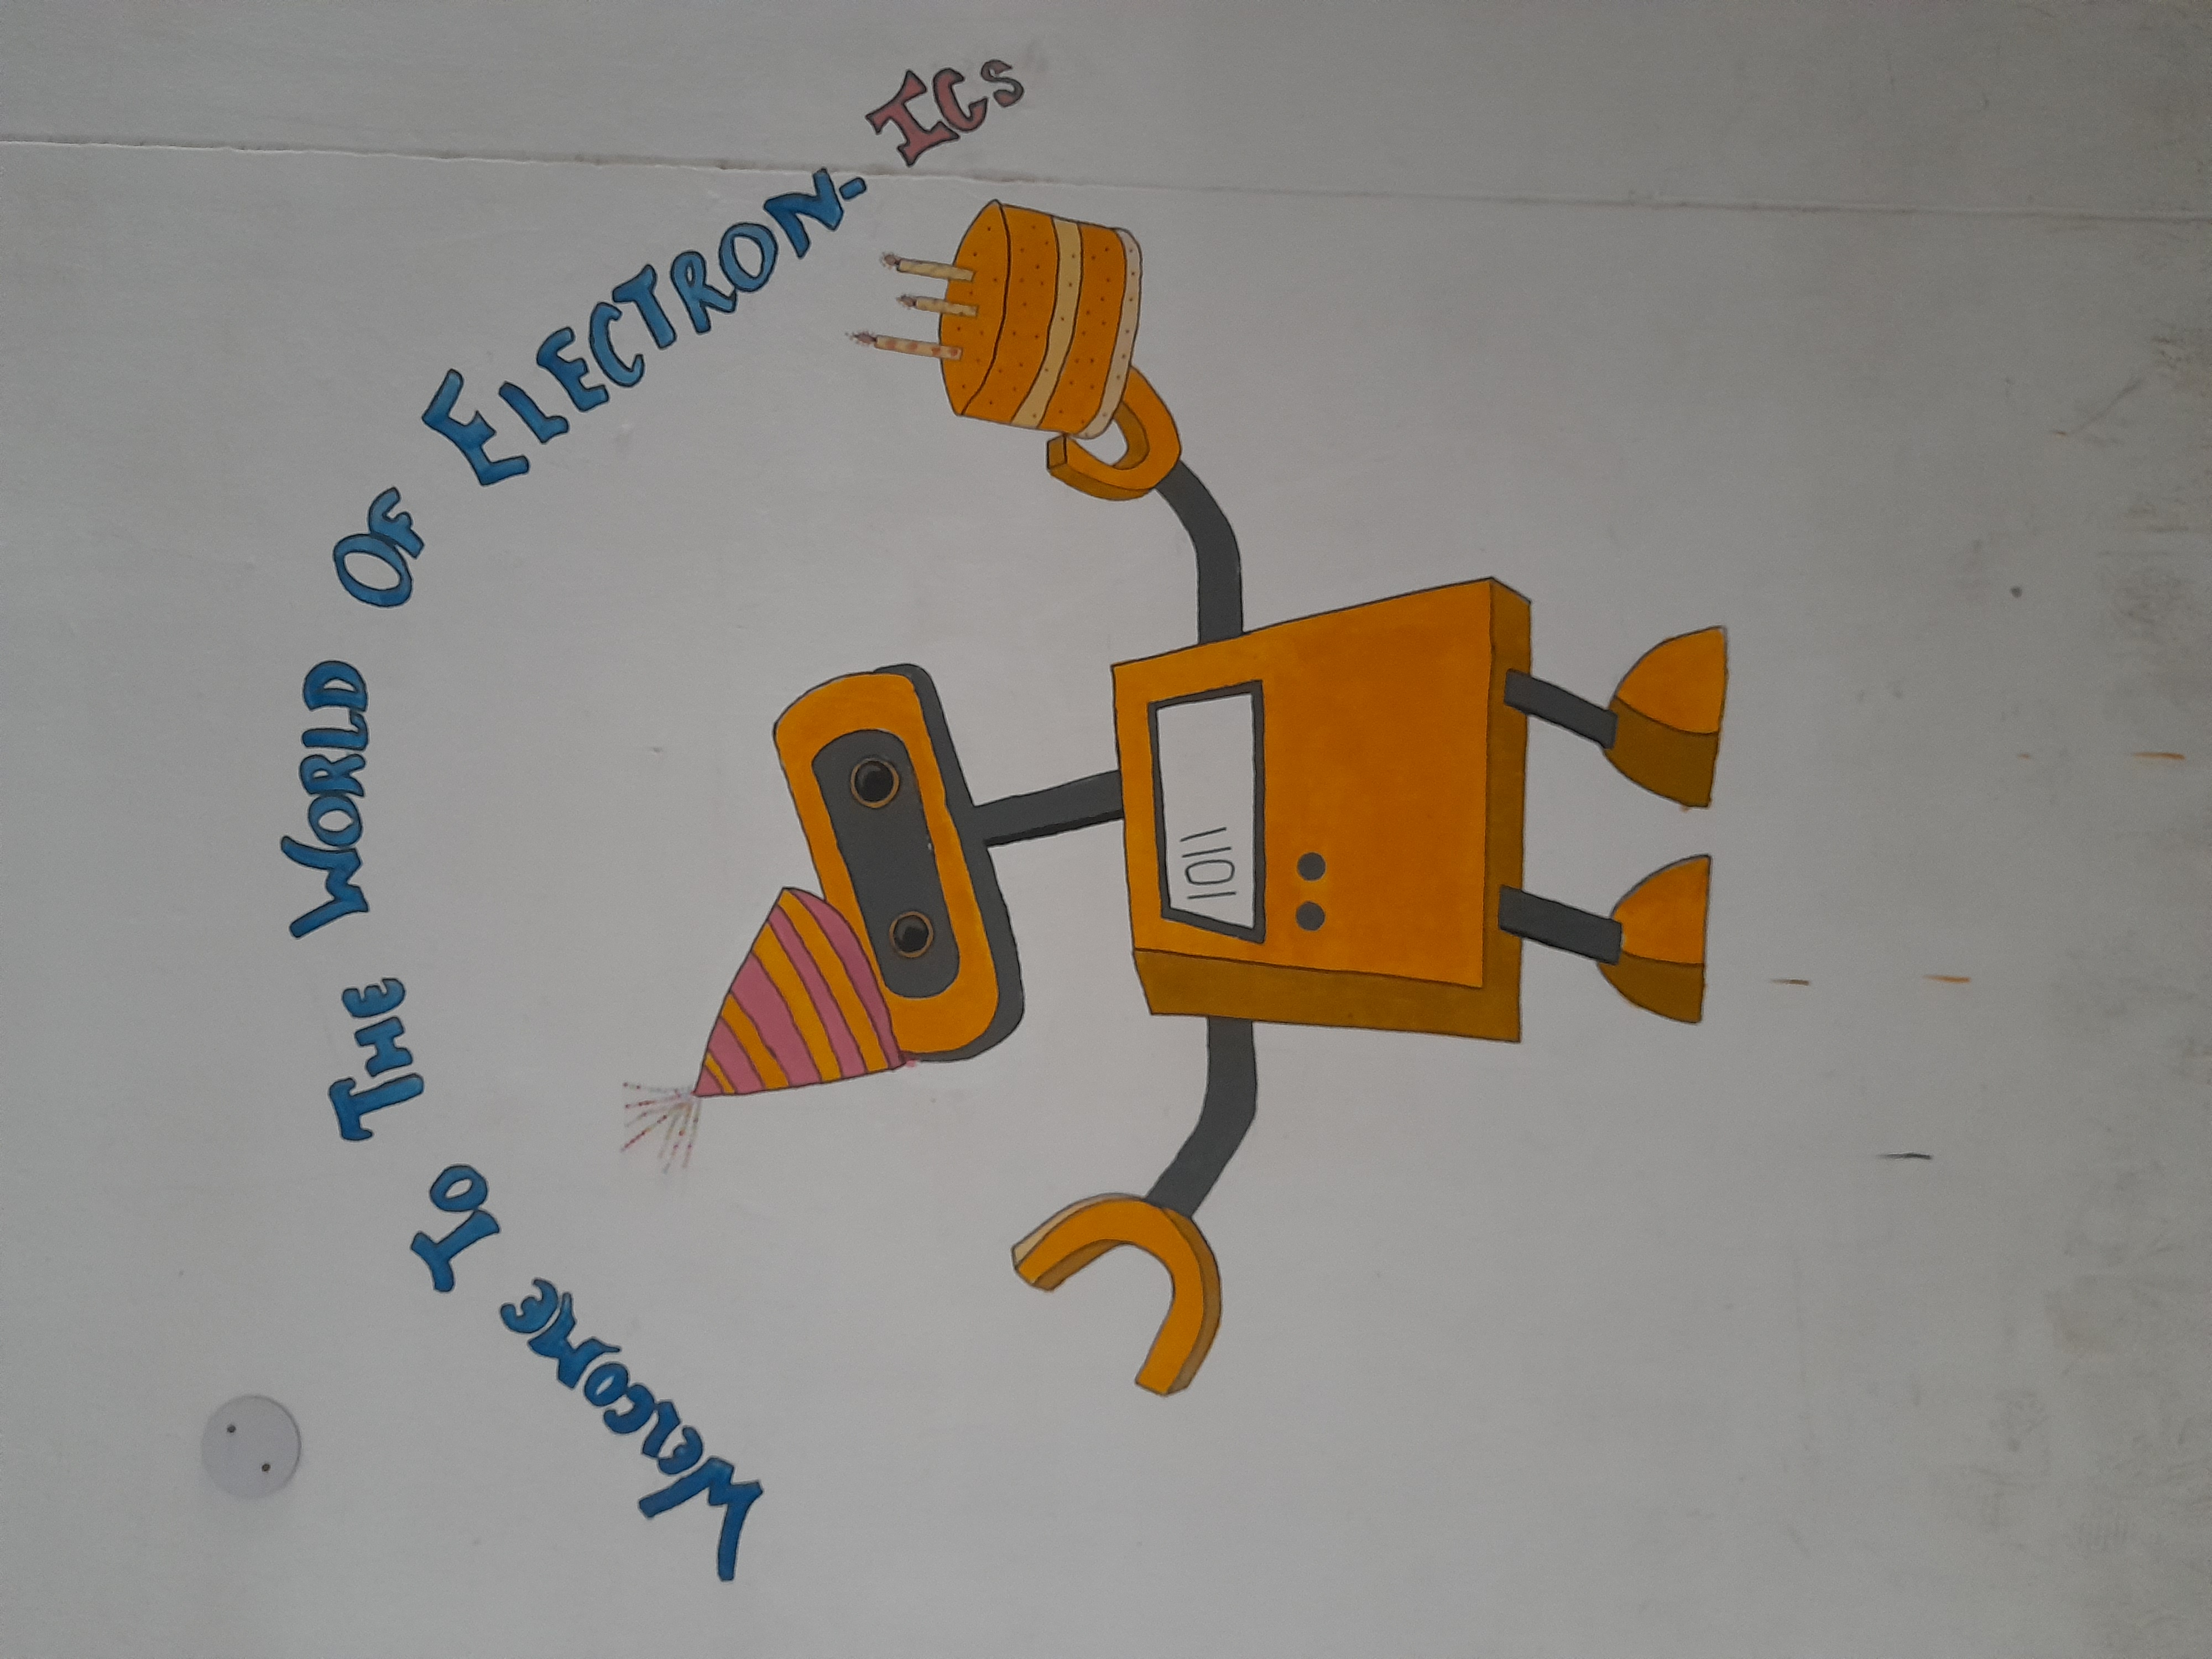 WELCOME TO THE WORLD OF ELECTRON-ICS
1011